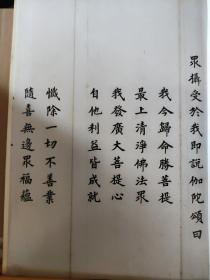 眾攝受於我即說伽陀頌曰
我今歸命勝菩提
最上清淨佛法眾
我發廣大菩提心
自他利益皆成就
懺除一切不善業
隨喜無邊眾福蘊